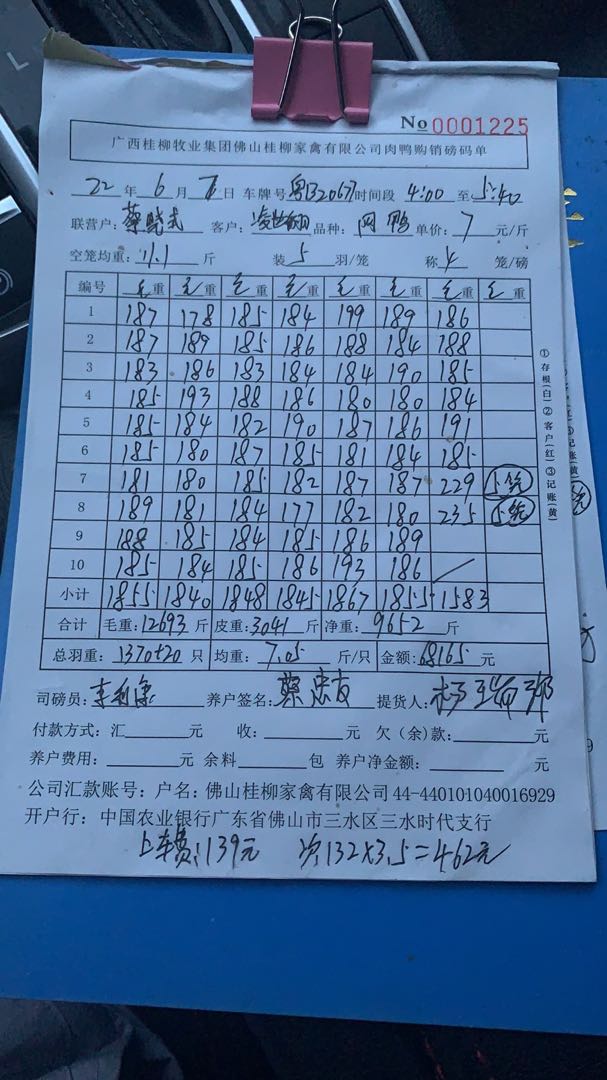 No 0001225
广西桂柳牧业集团佛山桂柳家禽有限公司肉鸭购销磅码单
22 年 6 月 日 车牌号 粤 时间段 4:00 至 5:40
联营户: 蔡晓武 客户: 品种: 鸭 单价: 7 元/斤
空笼均重: 11.1 斤 装 5 羽/笼 称 4 笼/磅
编号 毛重 毛重 毛重 毛重 毛重 毛重 毛重 毛重
1 187 178 185 184 199 189 186
2 187 189 185 186 188 184 188
3 183 186 183 184 184 190 185
4 185 193 188 186 180 180 184
5 185 184 182 190 187 186 191
6 185 180 187 185 181 184 185
7 181 180 185 182 187 187 229 5笼
8 189 181 184 177 182 180 235 5笼
9 188 185 184 185 186 189
10 185 184 185 186 193 186
小计 1855 1840 1848 1845 1867 1855 1583
合计 毛重: 12693 斤 皮重: 3041 斤 净重: 9652 斤
总羽重: 1370+20 只 均重: 7.05 斤/只 金额: 68165 元
①存根(白)②客户(红)③记账(黄)
司磅员: 养户签名: 蔡忠友 提货人:
付款方式: 汇 元 收: 元 欠(余)款: 元
养户费用: 元 余料 包 养户净金额: 元
公司汇款账号: 户名: 佛山桂柳家禽有限公司 44-440101040016929
开户行: 中国农业银行广东省佛山市三水区三水时代支行
上车费: 139元 132×3.5=462元